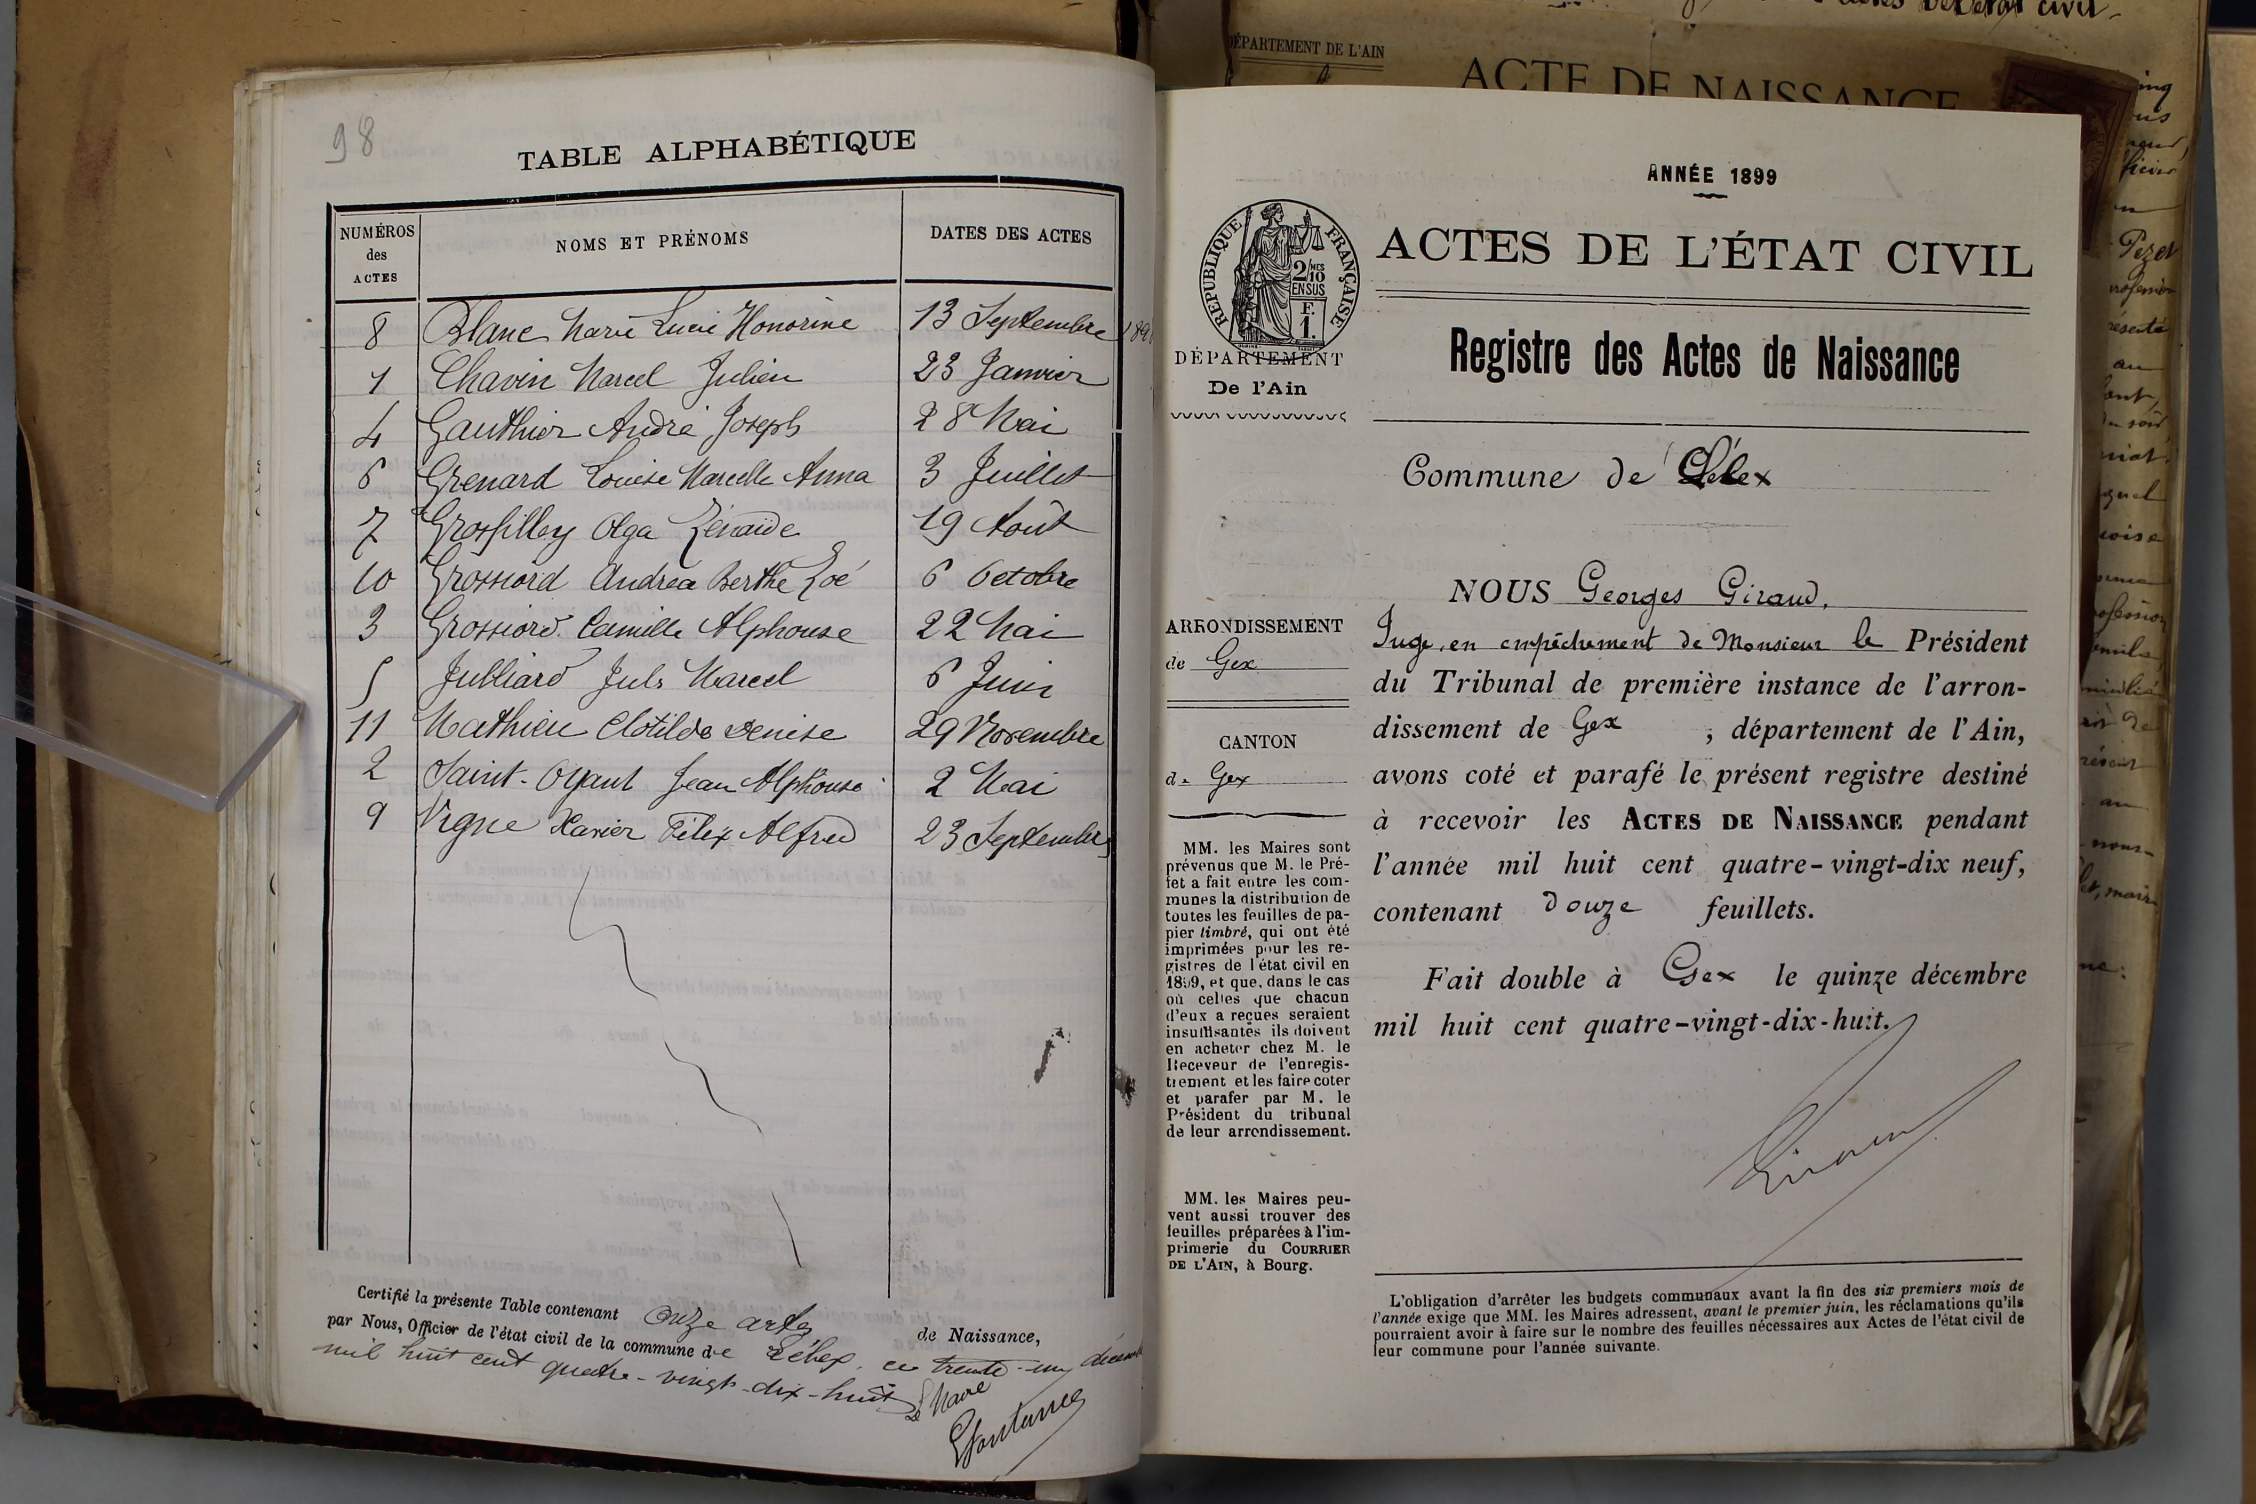 98
TABLE ALPHABÉTIQUE
NUMÉROS des ACTES
NOMS ET PRÉNOMS
DATES DES ACTES
8 Blanc Marie Lucie Honorine 13 Septembre 189
1 Chavin Marcel Julien 23 Janvier
4 Gauthier André Joseph 28 Mai
6 Grenard Louise Marcelle Anna 3 Juillet
7 Grosfilley Olga Zénaïde 19 Août
10 Grossiord Andréa Berthe Zoé 6 Octobre
3 Grossiord Camille Alphonse 22 Mai
5 Julliard Jules Marcel 6 Juin
11 Mathieu Clotilde Denise 29 Novembre
2 Saint-Oyant Jean Alphonse 2 Mai
9 Vigne Xavier Félix Alfred 23 Septembre
Certifié la présente Table contenant onze actes de Naissance,
par Nous, Officier de l'état civil de la commune de Lélex, ce trente-un décemb
mil huit cent quatre-vingt-dix-huit
Le Maire
DÉPARTEMENT DE L'AIN
ACTE DE NAISSANCE
ANNÉE 1899
ACTES DE L'ÉTAT CIVIL
RÉPUBLIQUE FRANÇAISE
2/10 MES
EN SUS
F.
1.
DÉPARTEMENT
De l'Ain
Registre des Actes de Naissance
Commune de Lélex
ARRONDISSEMENT
de Gex
CANTON
de Gex
MM. les Maires sont
prévenus que M. le Pré-
fet a fait entre les com-
munes la distribution de
toutes les feuilles de pa-
pier timbré, qui ont été
imprimées pour les re-
gistres de l'état civil en
1899, et que, dans le cas
où celles que chacun
d'eux a reçues seraient
insuffisantes ils doivent
en acheter chez M. le
Receveur de l'enregis-
trement et les faire coter
et parafer par M. le
Président du tribunal
de leur arrondissement.
MM. les Maires peu-
vent aussi trouver des
feuilles préparées à l'im-
primerie du COURRIER
DE L'AIN, à Bourg.
NOUS Georges Giraud,
Juge, en empêchement de Monsieur le Président
du Tribunal de première instance de l'arron-
dissement de Gex , département de l'Ain,
avons coté et parafé le présent registre destiné
à recevoir les ACTES DE NAISSANCE pendant
l'année mil huit cent quatre-vingt-dix neuf,
contenant douze feuillets.
Fait double à Gex le quinze décembre
mil huit cent quatre-vingt-dix-huit.
Giraud
L'obligation d'arrêter les budgets communaux avant la fin des six premiers mois de
l'année exige que MM. les Maires adressent, avant le premier juin, les réclamations qu'ils
pourraient avoir à faire sur le nombre des feuilles nécessaires aux Actes de l'état civil de
leur commune pour l'année suivante.